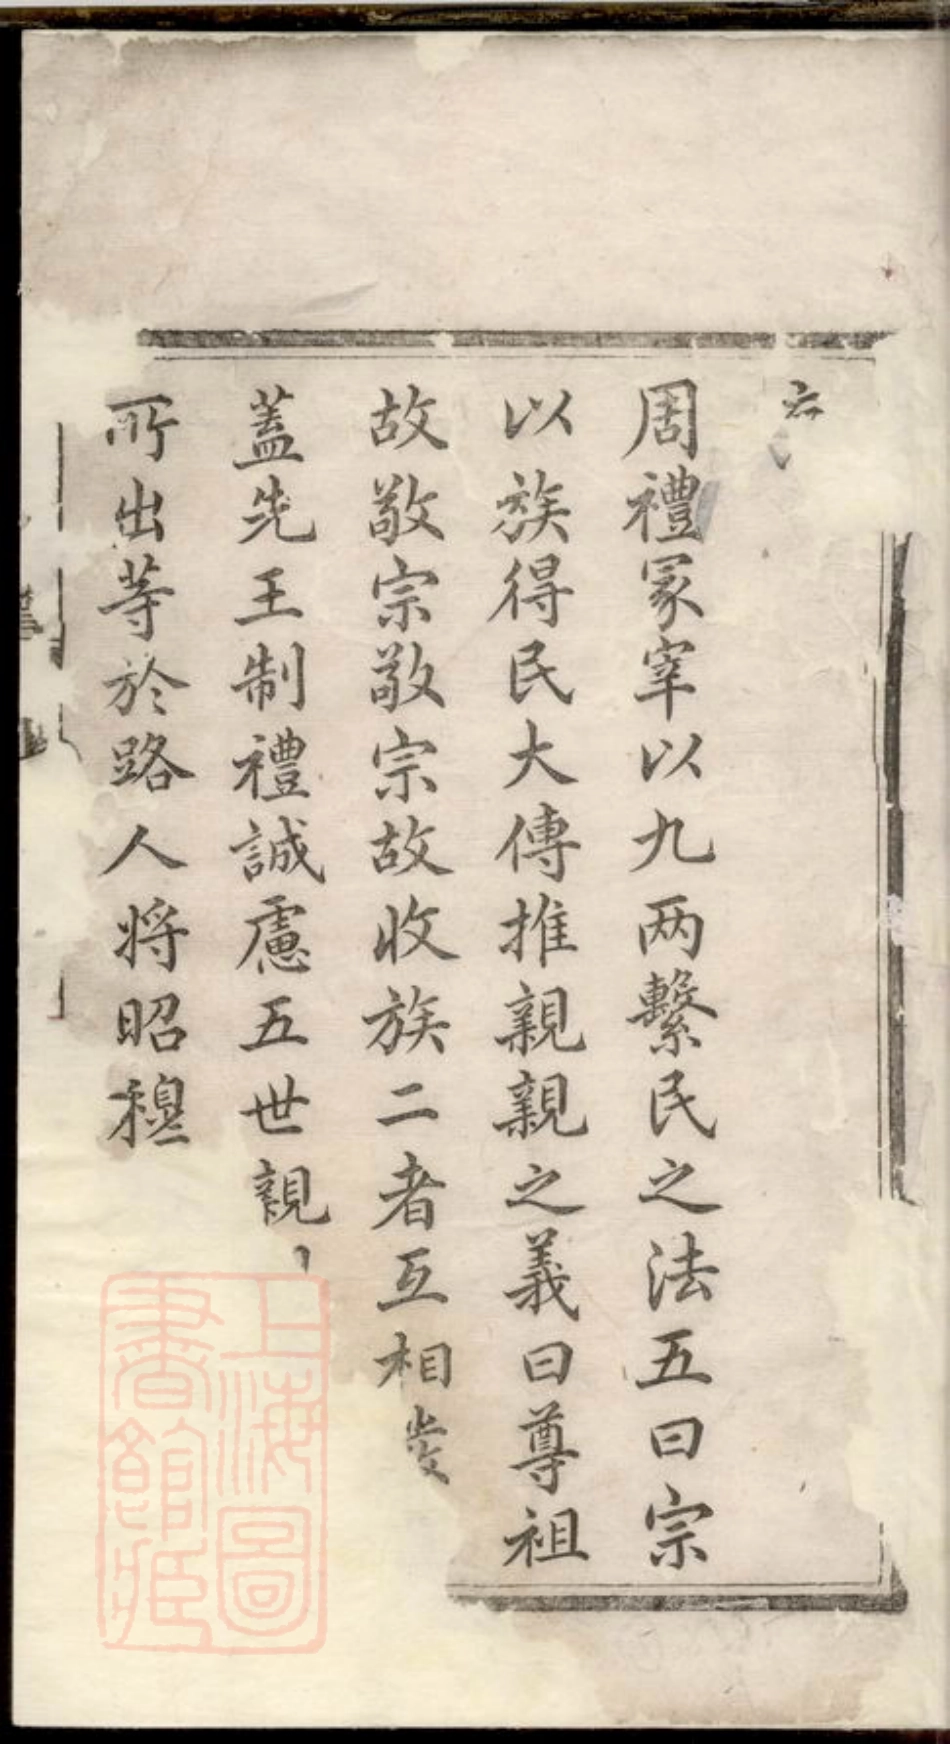 周禮冢宰以九两繫民之法五曰宗
以族得民大傳推親親之義曰尊祖
故敬宗敬宗故收族二者互相
蓋先王制禮誠慮五世親
所出等於路人将昭穆
上海圖
書館藏